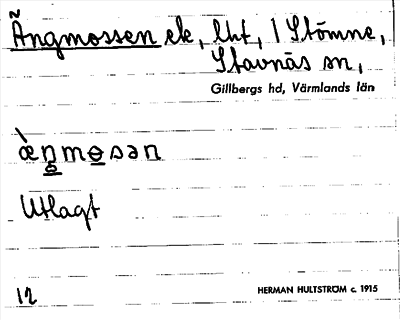 Ängmossen ek, lht, 1 Stömne,
Stavnäs sn,
Gillbergs hd, Värmlands län
Utlagt
12
HERMAN HULTSTRÖM c. 1915